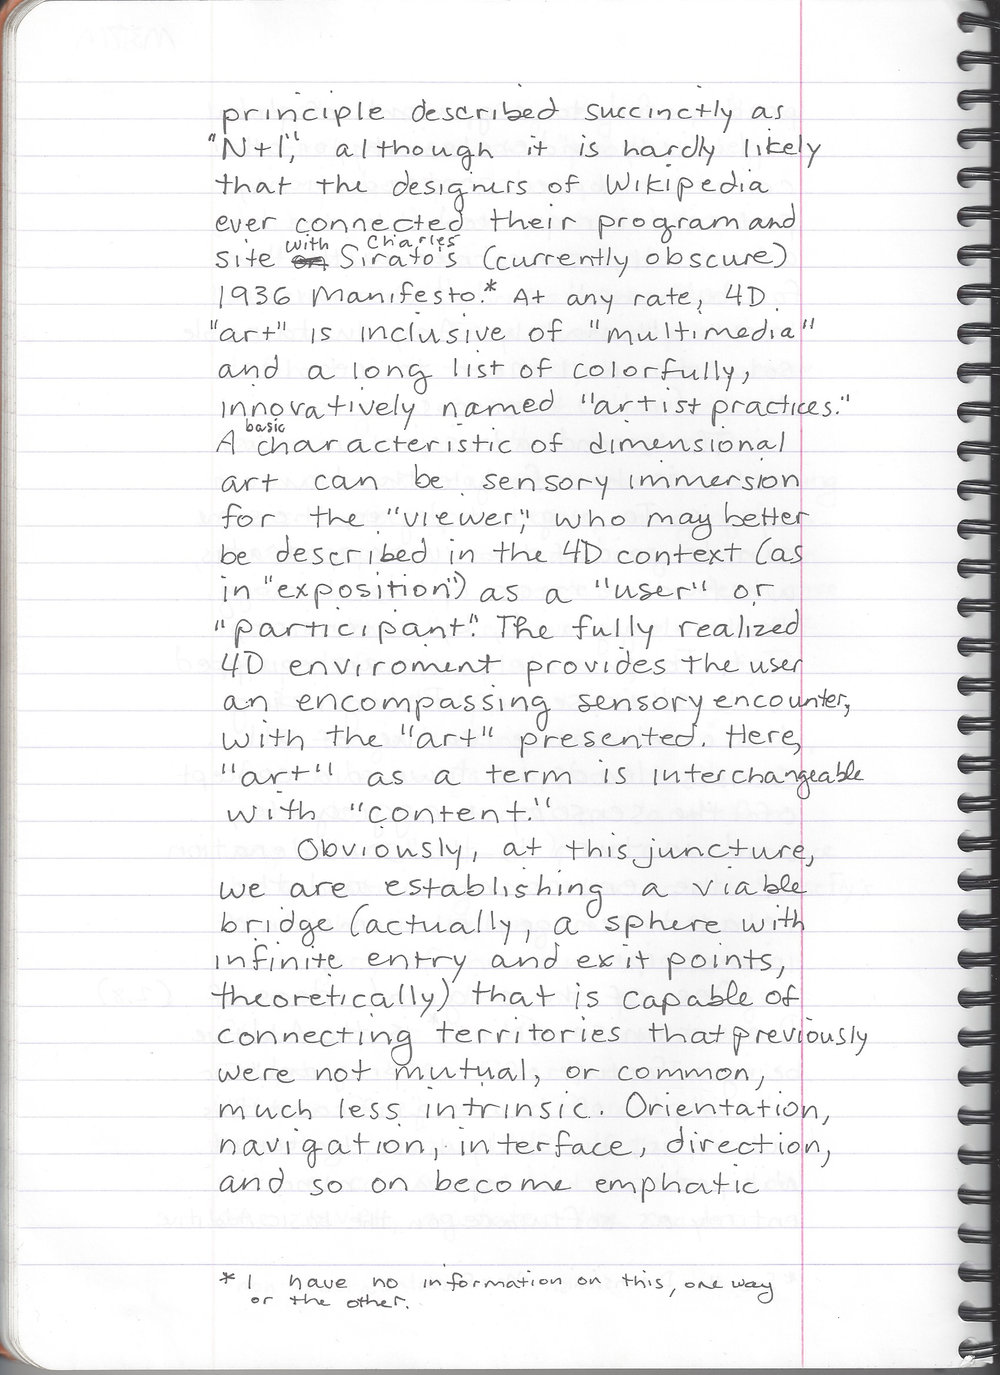 principle described succinctly as
"N+1," although it is hardly likely
that the designers of Wikipedia
ever connected their program and
site with Charles Sirato's (currently obscure)
1936 Manifesto.* At any rate, 4D
"art" is inclusive of "multimedia"
and a long list of colorfully,
innovatively named "artist practices."
A basic characteristic of dimensional
art can be sensory immersion
for the "viewer," who may better
be described in the 4D context (as
in "exposition") as a "user" or
"participant." The fully realized
4D enviroment provides the user
an encompassing sensory encounter,
with the "art" presented. Here,
"art" as a term is interchangeable
with "content."
Obviously, at this juncture,
we are establishing a viable
bridge (actually, a sphere with
infinite entry and exit points,
theoretically) that is capable of
connecting territories that previously
were not mutual, or common,
much less intrinsic. Orientation,
navigation, interface, direction,
and so on become emphatic
* I have no information on this, one way
or the other.